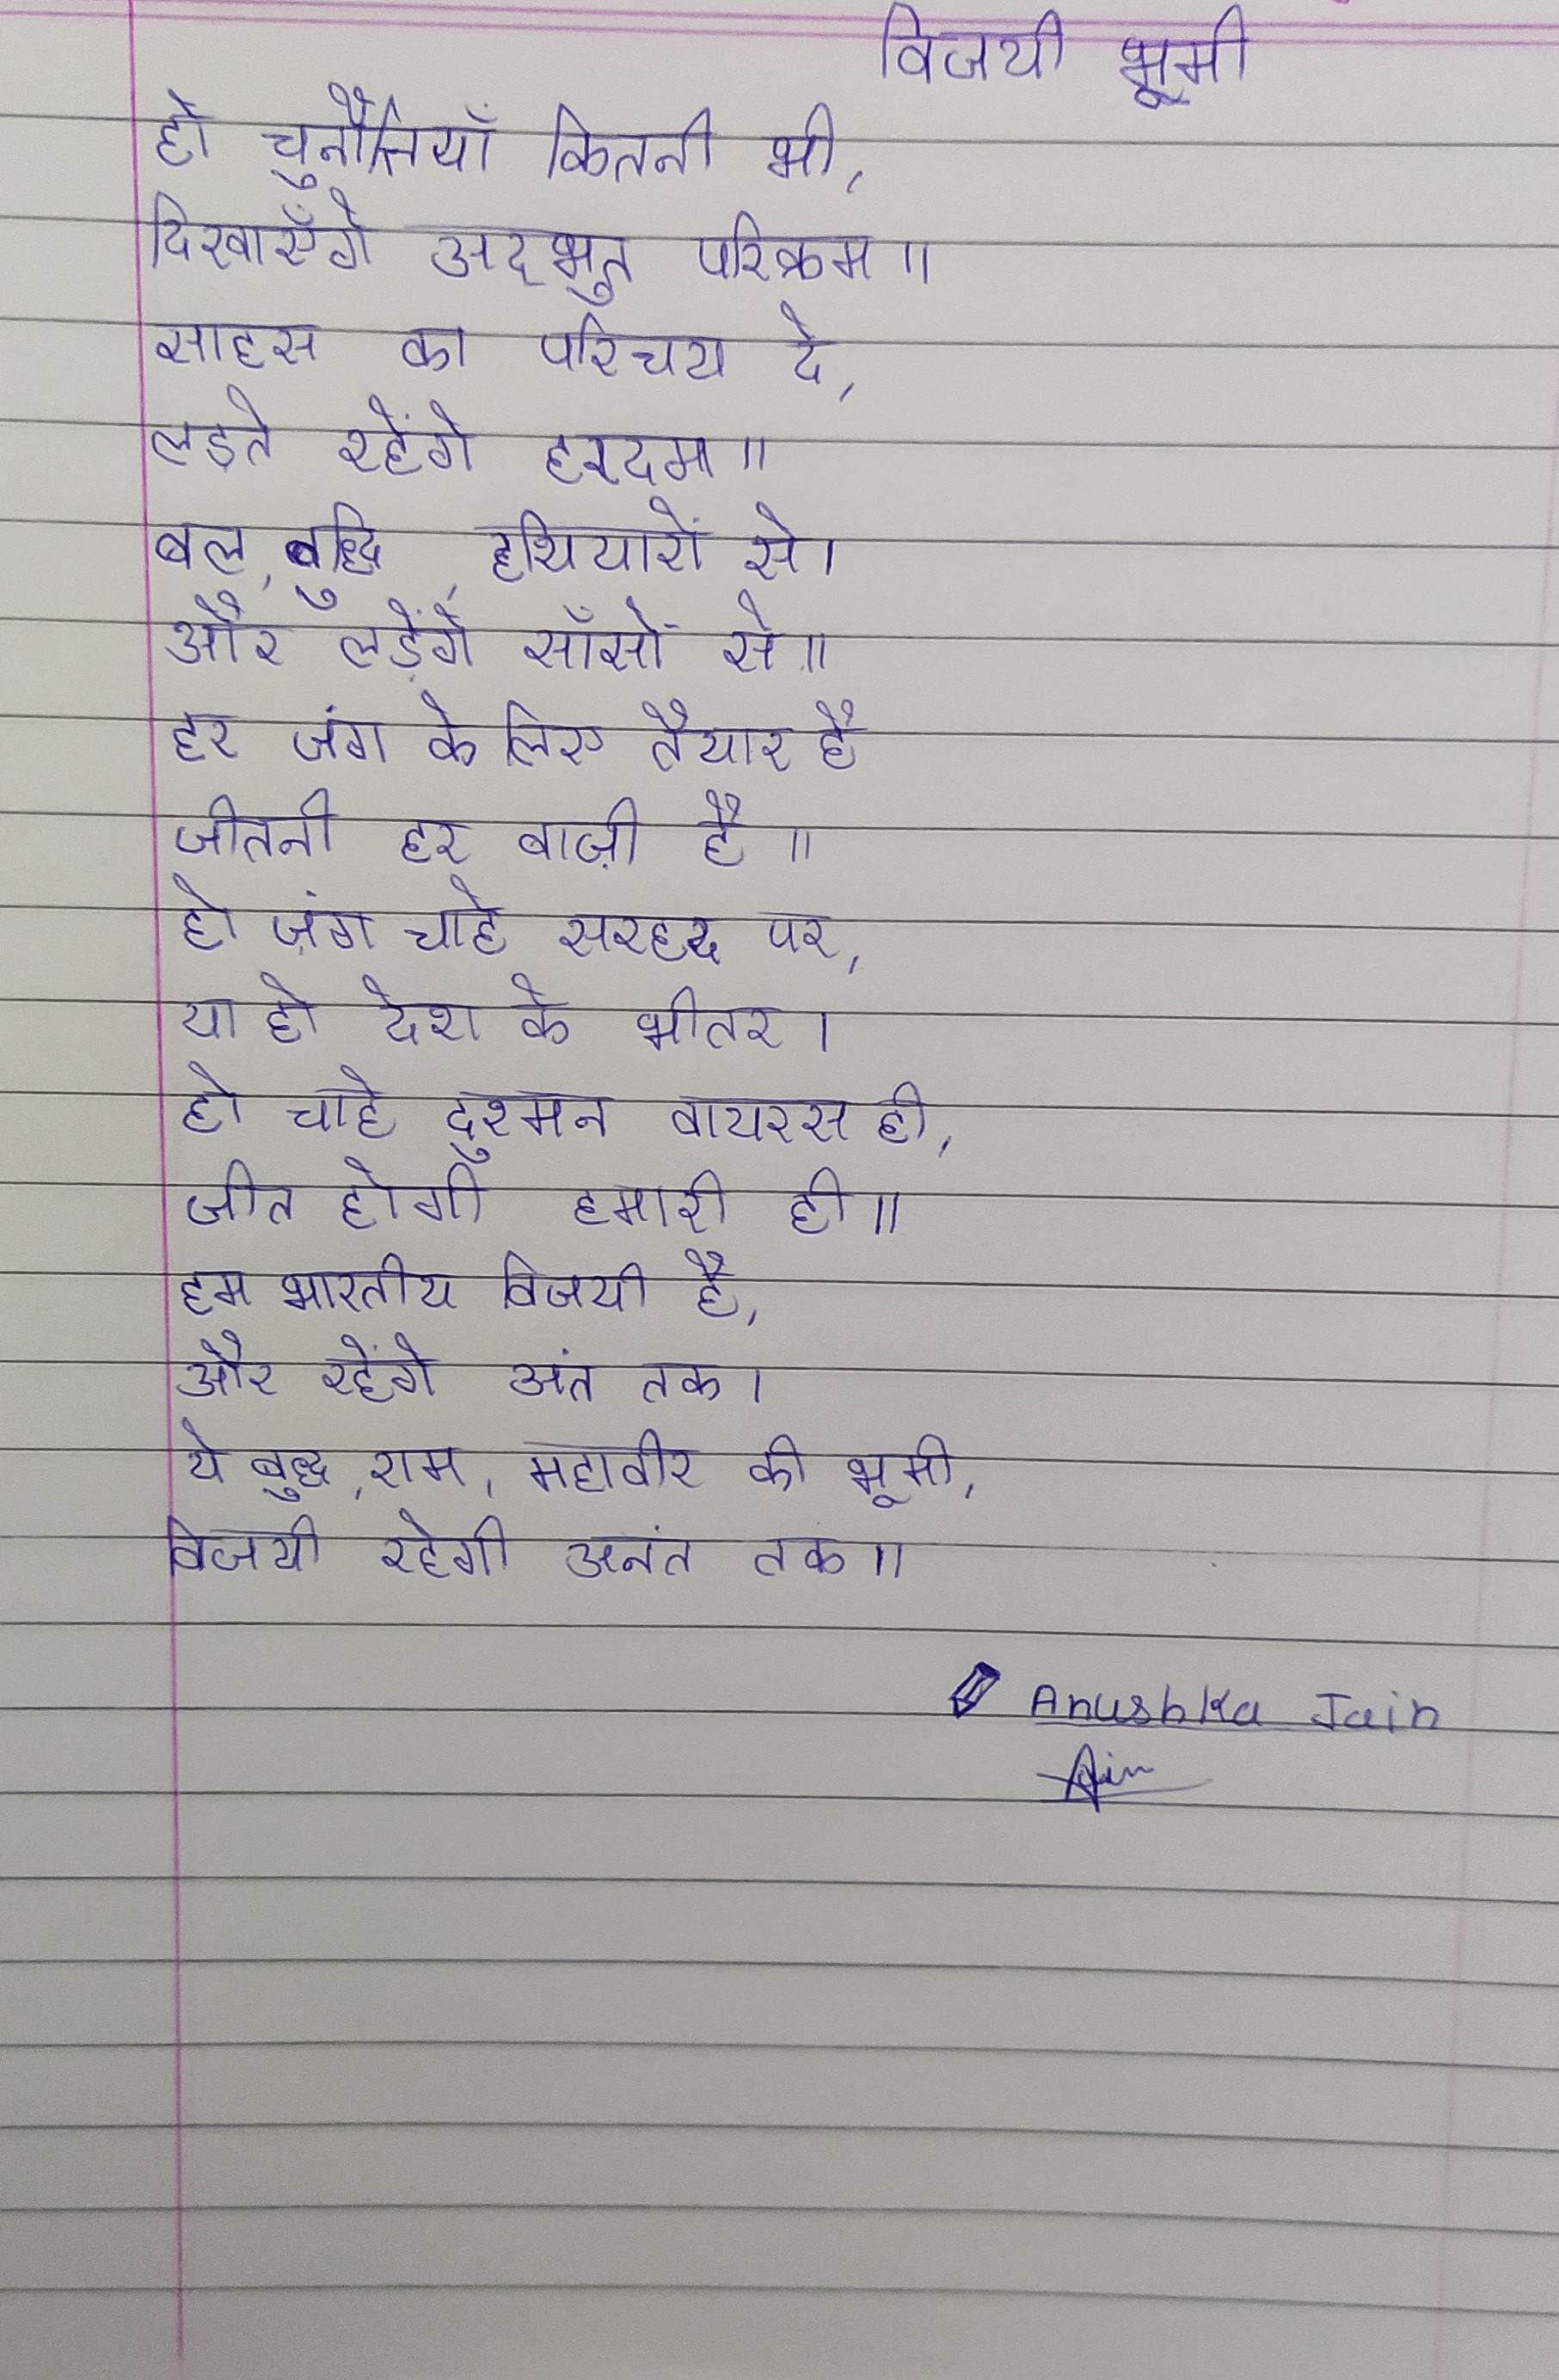 विजयी भूमी
हो चुनौतियाँ कितनी भी,
दिखाएँगे अद्भुत परिक्रम॥
साहस का परिचय दे,
लड़ते रहेंगे हरदम॥
बल, बुद्धि, हथियारों से।
और लड़ेंगे साँसों से॥
हर जंग के लिए तैयार है
जीतनी हर बाज़ी है॥
हो ज़ंग चाहे सरहद पर,
या हो देश के भीतर।
हो चाहे दुश्मन वायरस ही,
जीत होगी हमारी ही॥
हम भारतीय विजयी है,
और रहेंगे अंत तक।
ये बुद्ध, राम, महावीर की भूमी,
विजयी रहेगी अनंत तक॥
Anushka Jain